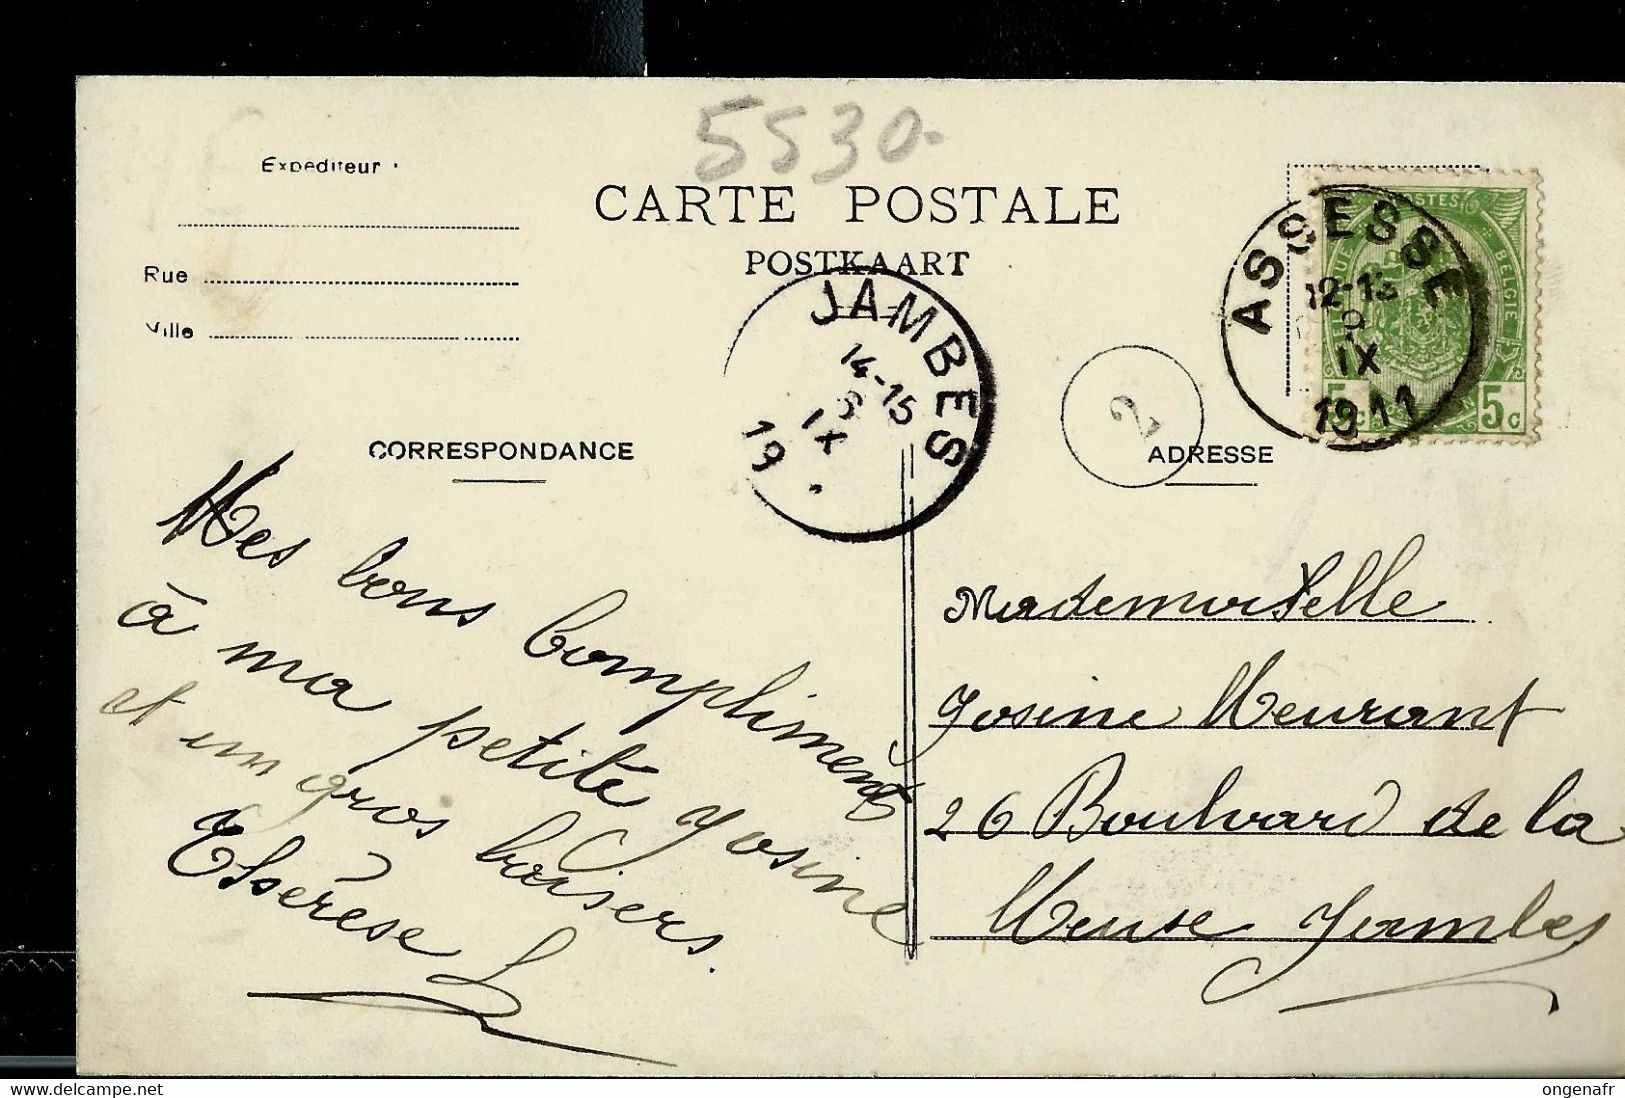 5530-
Expediteur
CARTE POSTALE
POSTKAART
Rue
Ville
ASSESSE
12-13
9
IX
1911
POSTES
BELGIQUE BELGIE
5c 5c
JAMBES
14-15
IX
19
2
CORRESPONDANCE
ADRESSE
Mes bons compliments
à ma petite Josine
et un gros baisers.
Thérèse L
Mademoiselle
Josine Meurant
26 Boulvard de la
Meuse Jambes
delcampe.net
ongenafr